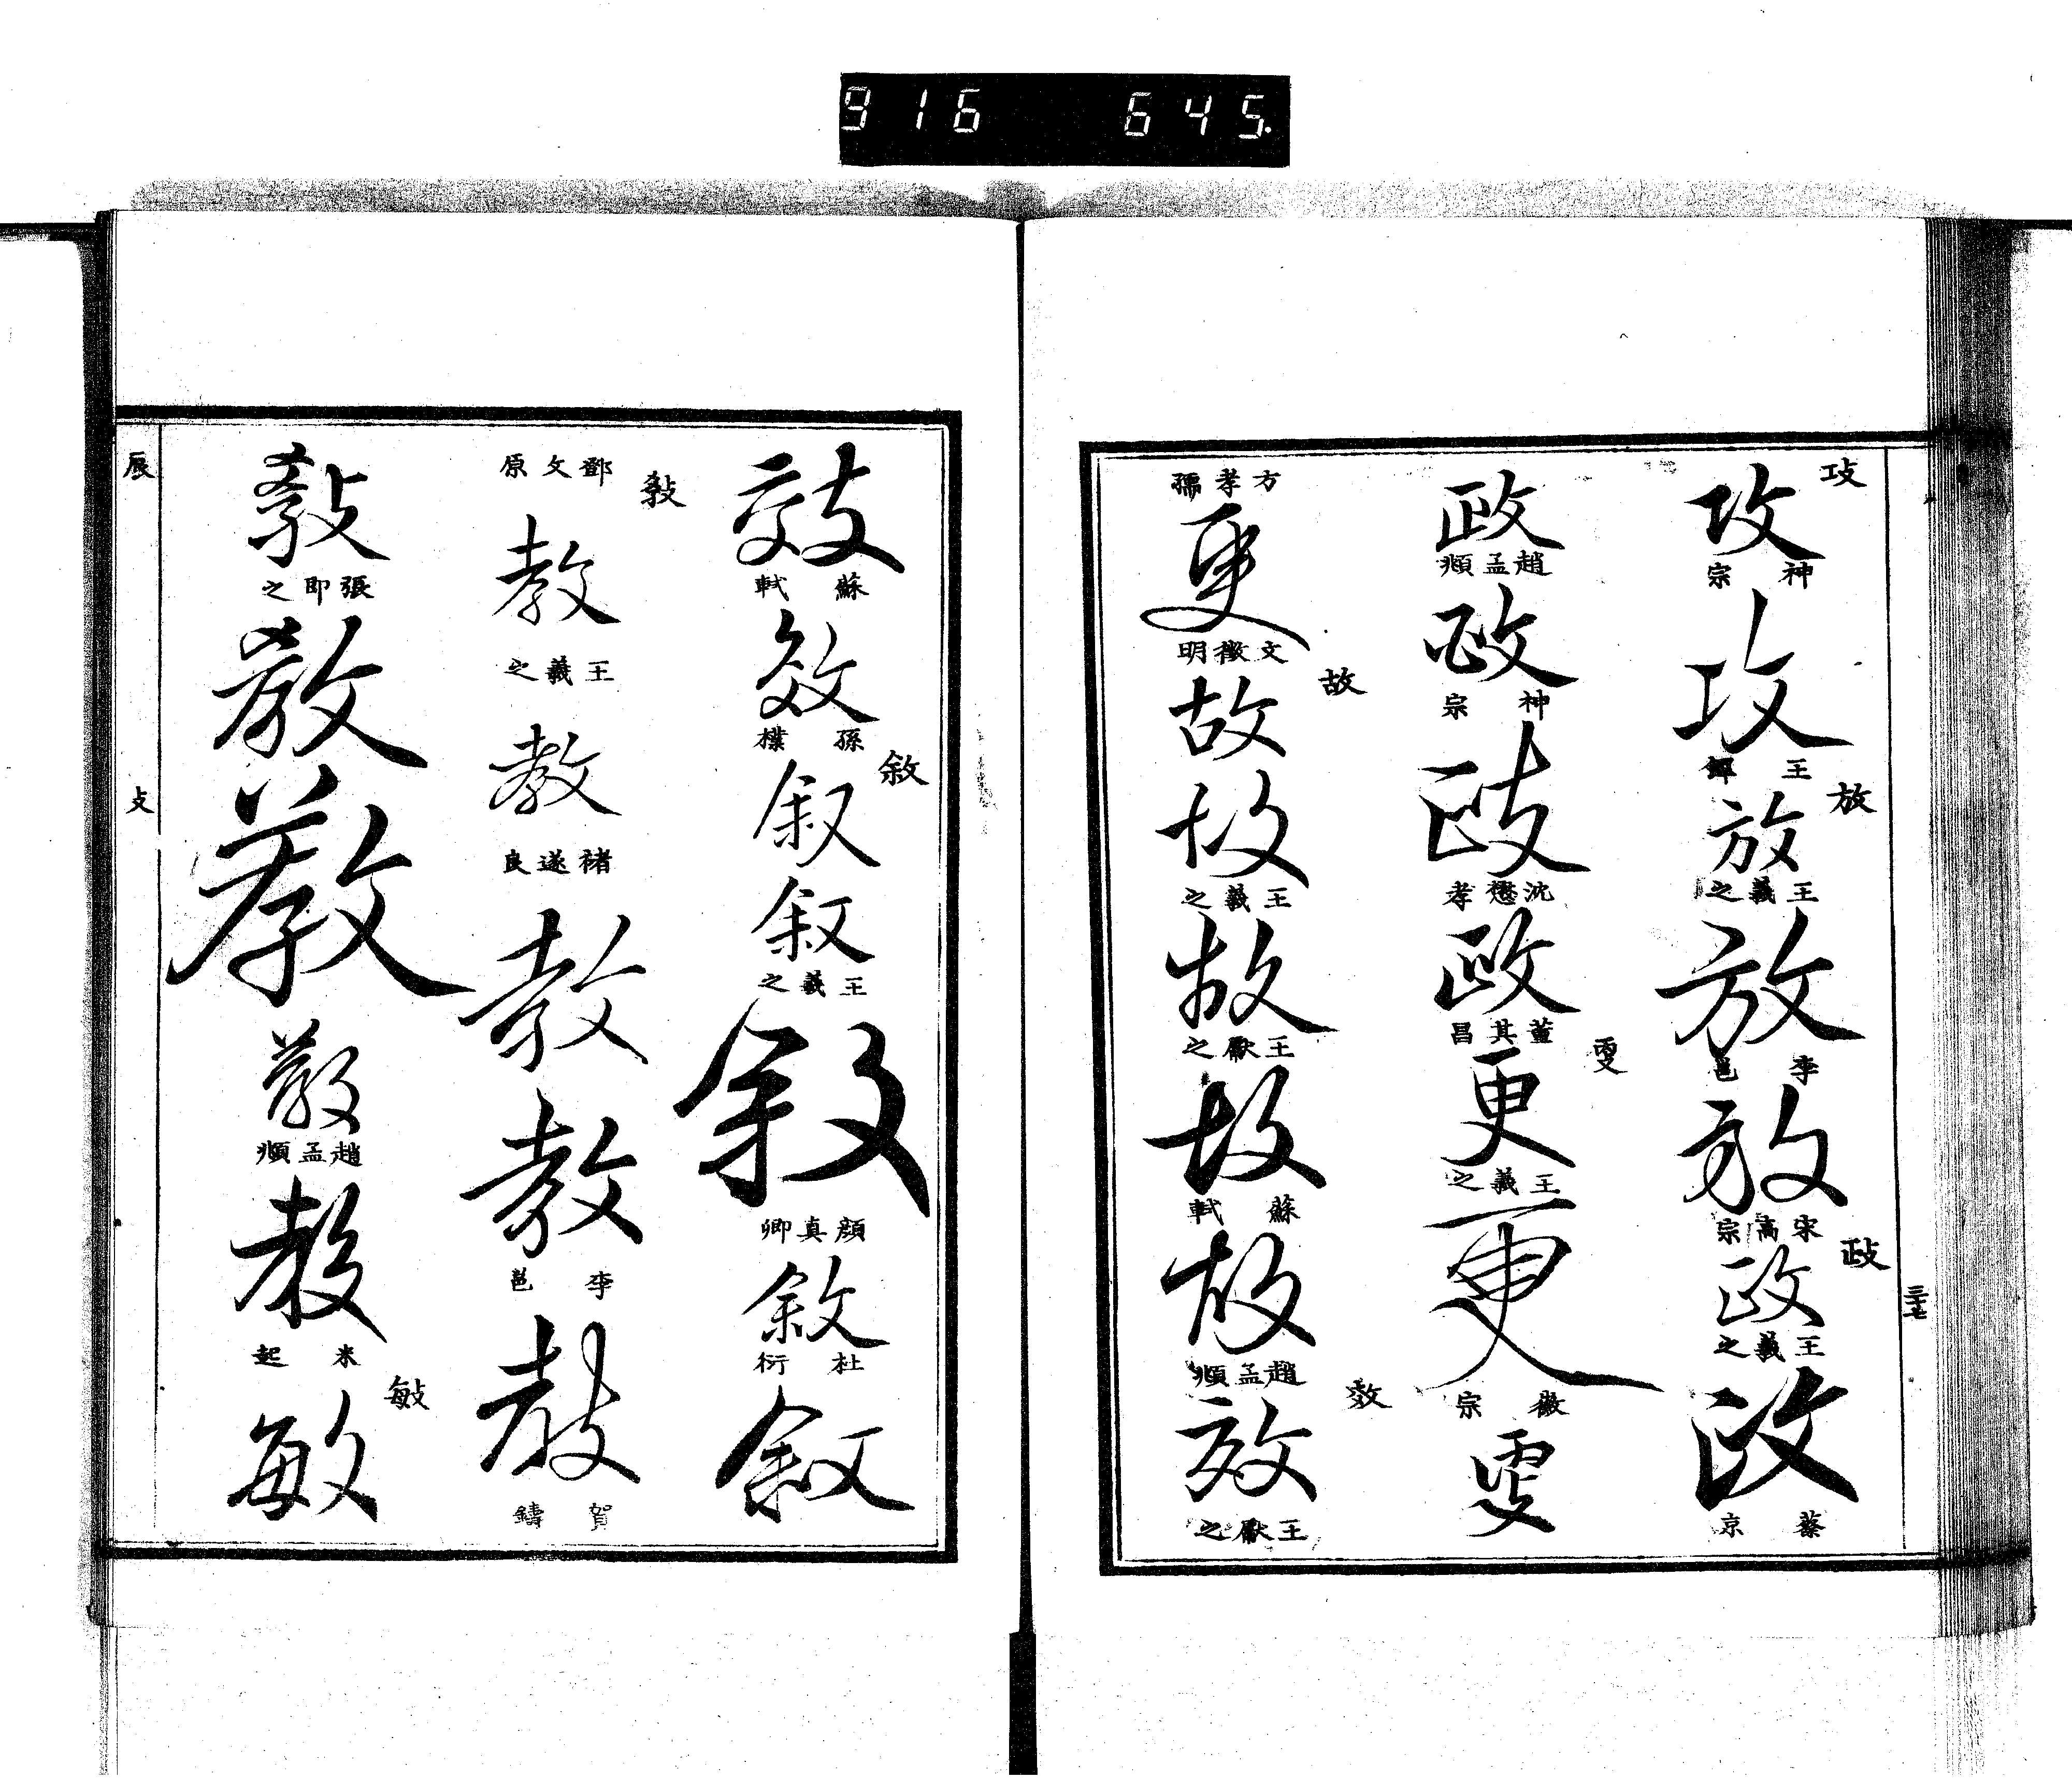 916 645.
三十七
攻
攻
神宗
攻
王鐸
放
放
王羲之
放
李邕
放
宋高宗
政
政
王羲之
政
蔡京
政
趙孟頫
政
神宗
政
沈懋孝
政
董其昌
㪅
更
王羲之
更
徽宗
㪅
方孝孺
更
文徵明
故
故
故
王羲之
故
王獻之
故
蘇軾
故
趙孟頫
效
效
王獻之
效
蘇軾
效
孫樸
敘
叙
叙
王羲之
叙
顏真卿
敘
杜衍
叙
鄧文原
敎
教
王羲之
教
褚遂良
教
教
李邕
教
賀鑄
教
張即之
教
教
教
趙孟頫
教
米
敏
敏
辰
攴